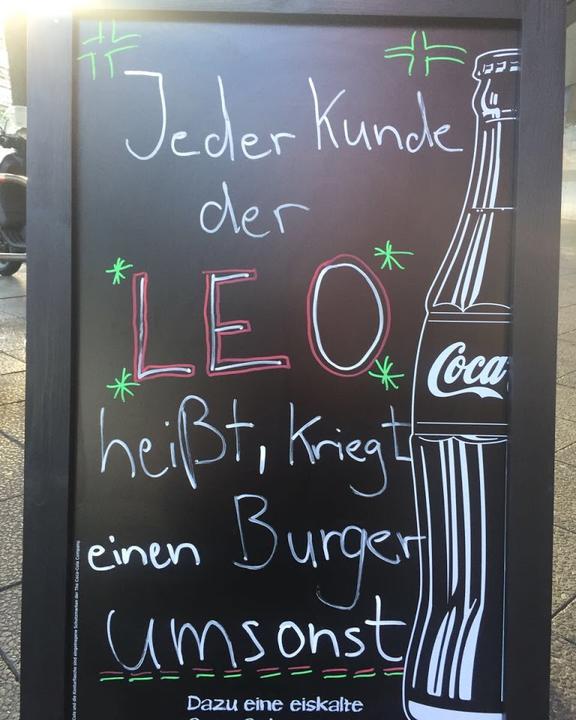 Jeder Kunde
der
LEO
heißt, kriegt
einen Burger
umsonst
Dazu eine eiskalte
Coca